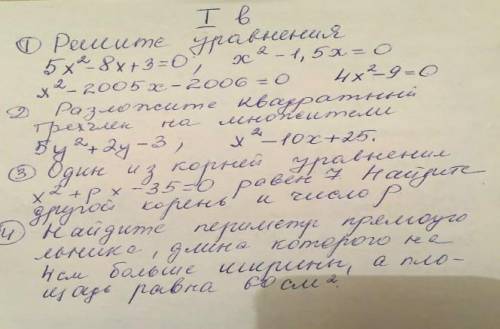 I в
① Решите уравнения
5x²-8x+3=0, x²-1,5x=0
x²-2005x-2006=0 4x²-9=0
② Разложите квадратный
трёхчлен на множители
5y²+2y-3, x²-10x+25.
③ Один из корней уравнения
x²+px-35=0 равен 7. Найдите
другой корень и число p
④ Найдите периметр прямоуго
льника, длина которого на
4см больше ширины, а пло-
щадь равна 60см².